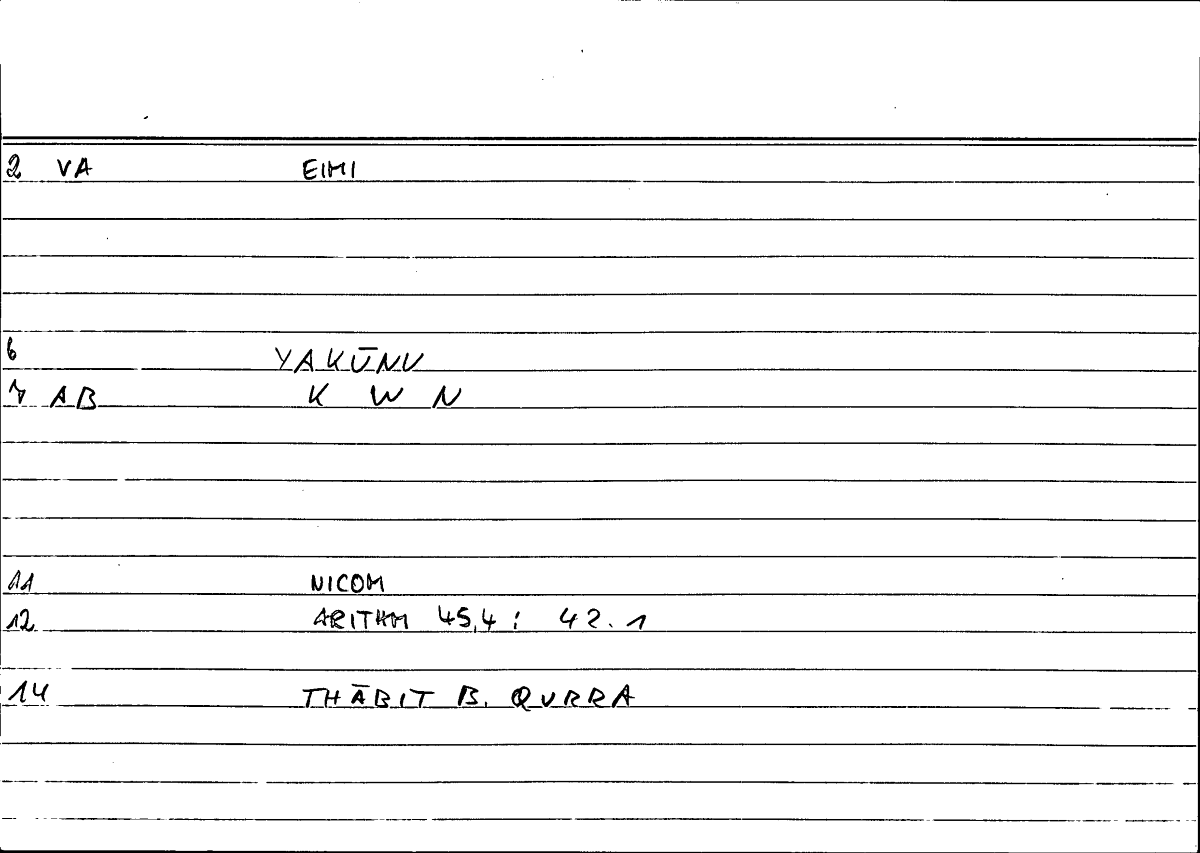 2 VA EIMI
6 YAKŪNU
7 AB K W N
11 NICOM
12 ARITHM 45,4 : 42.1
14 THĀBIT B. QURRA